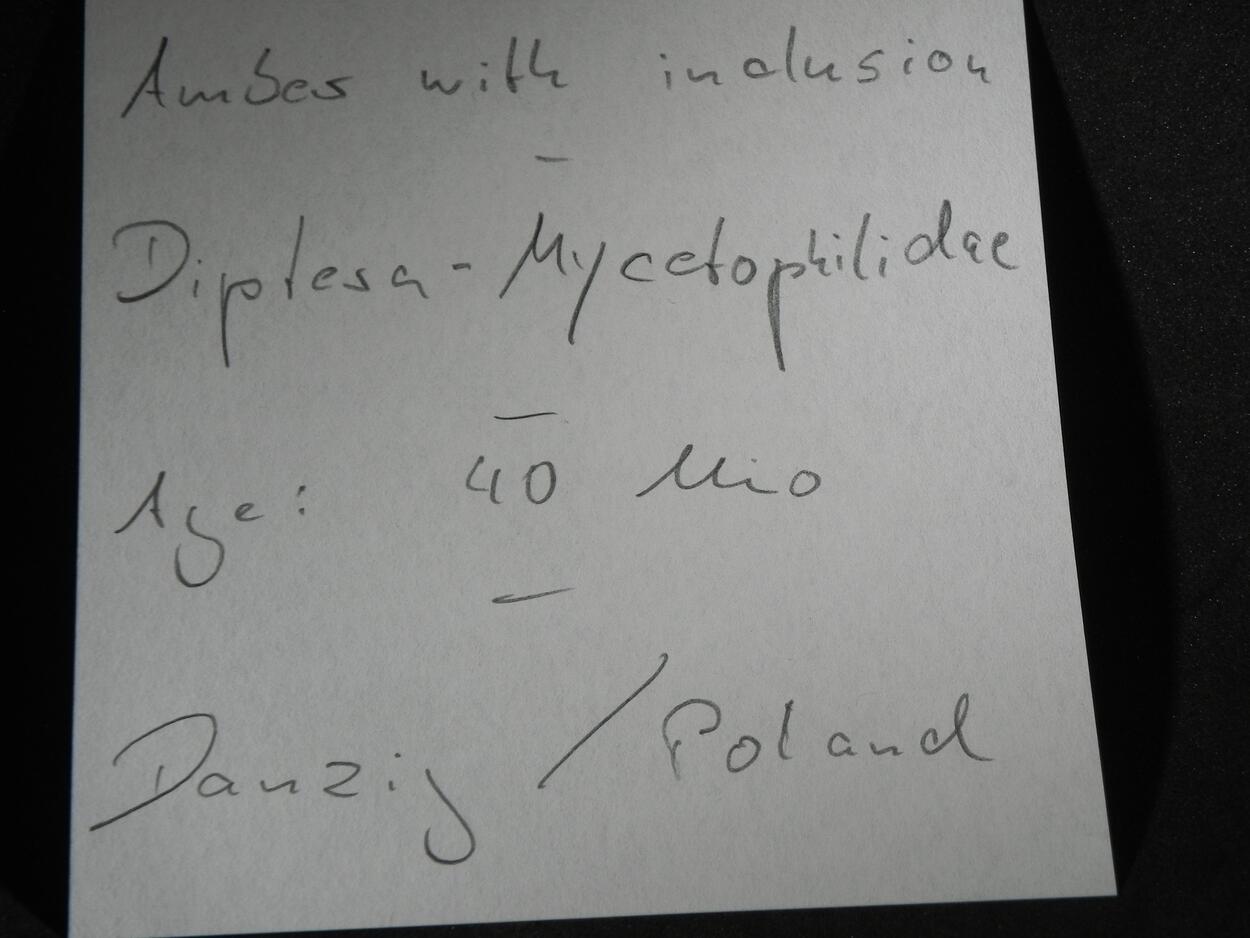 Amber with inclusion
–
Diptera - Mycetophilidae
–
Age: 40 Mio
–
Danzig / Poland